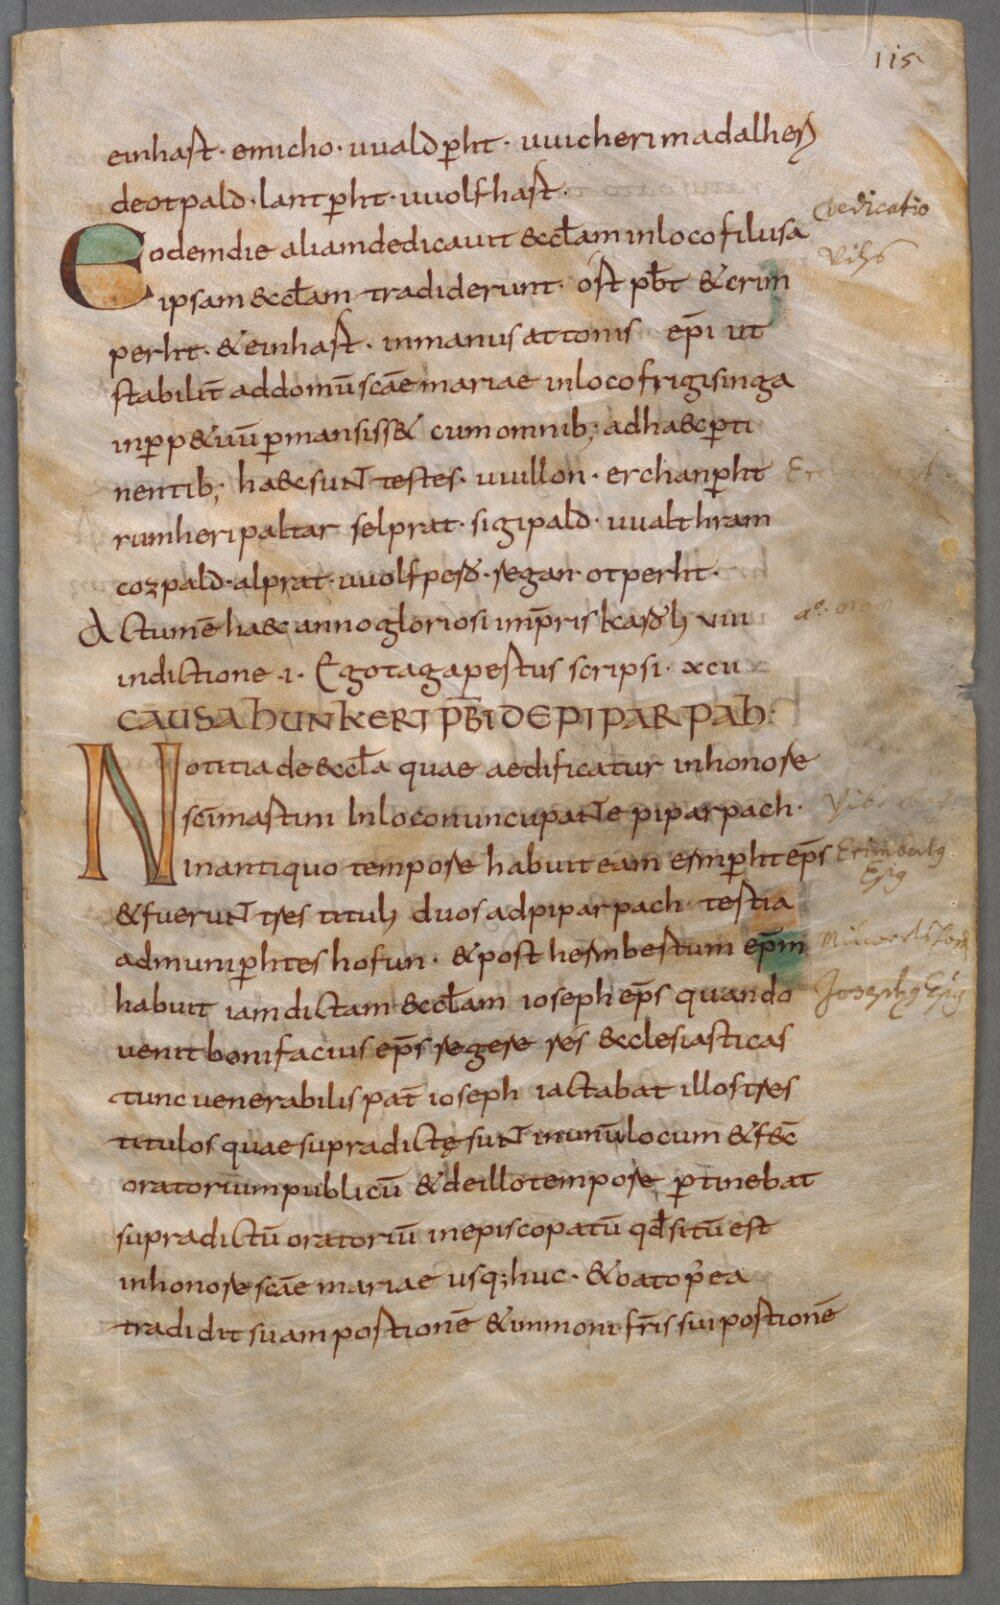 115
einhast · emicho · uualdp̄ht · uuicheri madalheri
deotpald · lantp̄ht · uuolfhast ·
Eodem die aliam dedicauit &ccl̄am in loco filusa
Dedicatio
Vils
ipsam &ccl̄am tradiderunt · óst pb̄t & crim
perht · & einhast · in manus attonis ep̄i ut
stabilit̄ ad domū sc̄ae mariae in loco frigisinga
inp̄p&uū p̄mansiss& cum omnib; ad ha&c p̄ti
nentib; ha&c sunt testes · uuillon · erchanp̄ht
rumheri paltar selprat · sigipald · uualthram
cozpald · alprat · uuolfpero · regan · otperht ·
Actum ē ha&c anno gloriosi imp̄ris karoli viiii
indictione · i · Ego tagapertus scripsi · xcii
CAUSA HUNKERI PB̄I DE PIPARPAH ·
Notitia de &ccl̄a quae aedificatur in honore
sc̄i martini In loco nuncupante piparpach ·
in antiquo tempore habuit eam ermp̄ht ep̄s
Erimbertg
Epg
& fuerunt tres tituli duos ad piparpach · tertia
ad munip̄htes hofun · & post herimbertum ep̄m
habuit iam dictam &ccl̄am ioseph ep̄s quando
Josephg Epg
uenit bonifacius ep̄s regere res &cclesiasticas
tunc uenerabilis pat̄ ioseph iactabat illos tres
titulos quae supradictę sunt in unū locum & fec̄
oratorium publicū & de illo tempore p̄tinebat
supradictū oratoriū in episcopatū qđ sitū est
in honore sc̄ae mariae usq; huc · & oato p̄ea
tradidit suam portionē & immoni fr̄is sui portionē